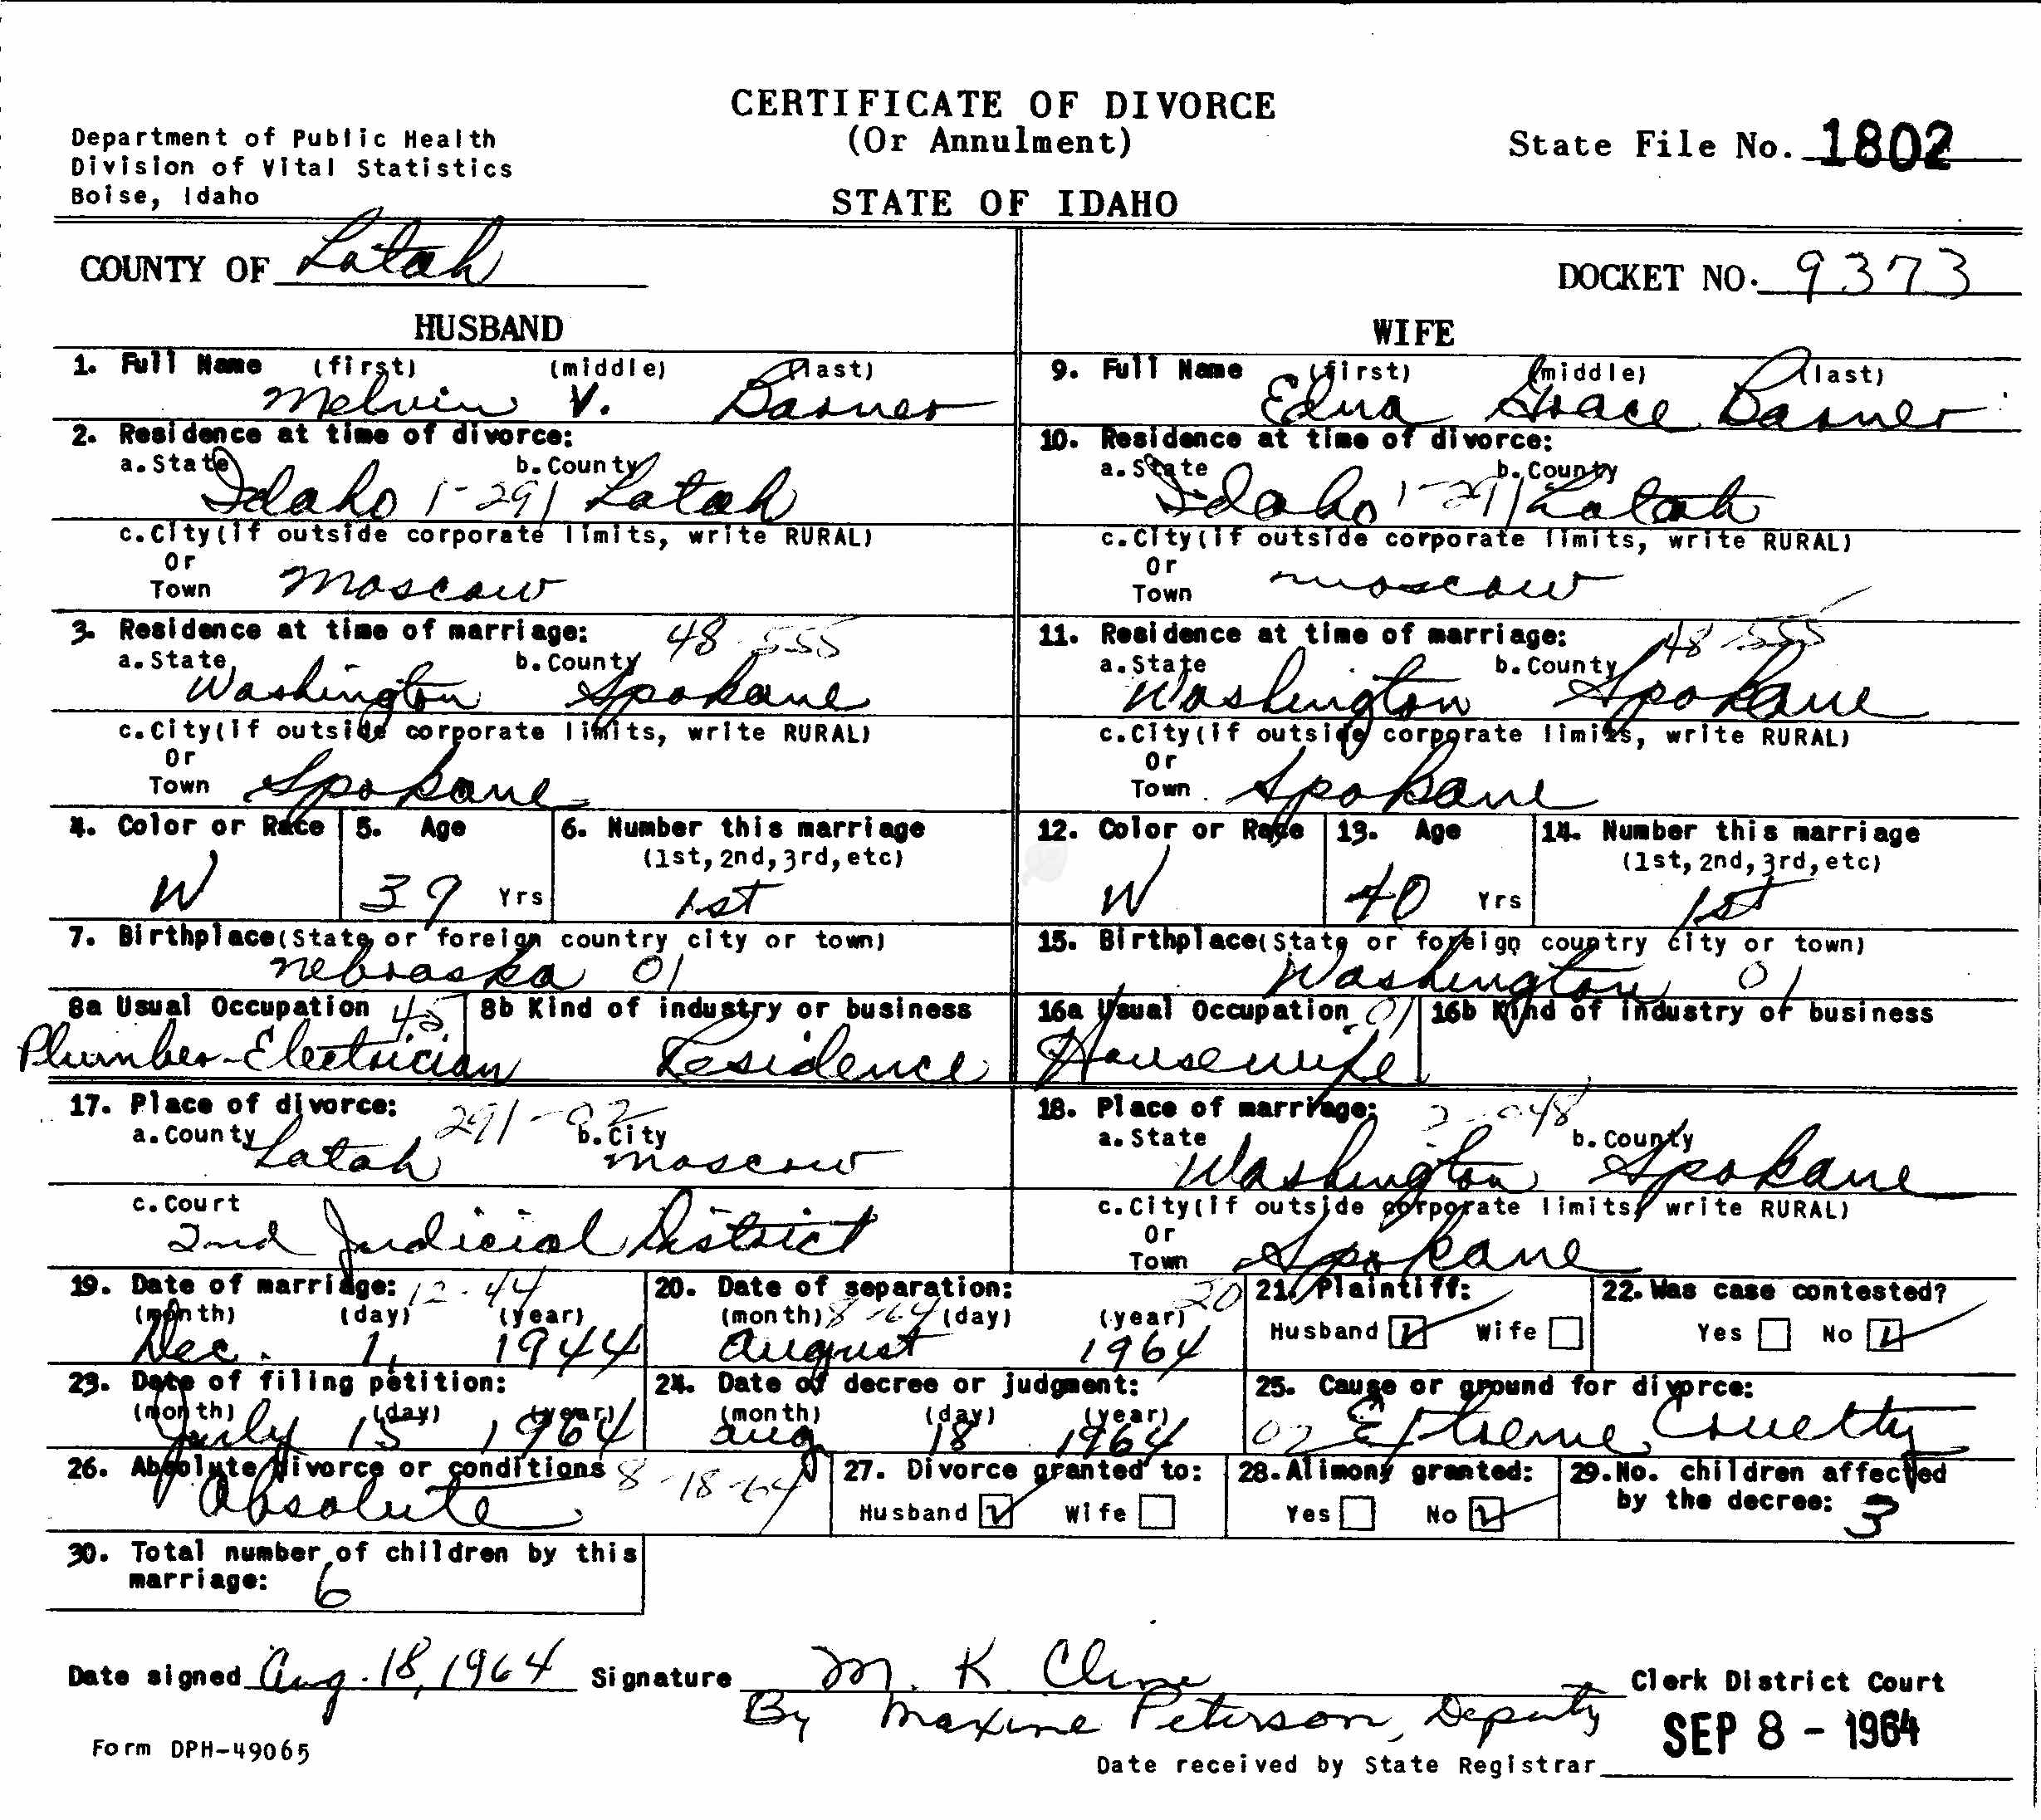 CERTIFICATE OF DIVORCE
(Or Annulment)
STATE OF IDAHO
Department of Public Health
Division of Vital Statistics
Boise, Idaho
State File No. 1802
COUNTY OF Latah
DOCKET NO. 9373
HUSBAND
1. Full Name (first) (middle) (last)
Melvin V. Basner
2. Residence at time of divorce:
a. State b. County
Idaho 1-291 Latah
c. City (if outside corporate limits, write RURAL)
Or
Town Moscow
3. Residence at time of marriage: 48-555
a. State b. County
Washington Spokane
c. City (if outside corporate limits, write RURAL)
Or
Town Spokane
4. Color or Race 5. Age 6. Number this marriage
(1st, 2nd, 3rd, etc)
W 39 Yrs 1st
7. Birthplace (State or foreign country city or town)
Nebraska 01
8a Usual Occupation 45 8b Kind of industry or business
Plumber-Electrician Residence
WIFE
9. Full Name (first) (middle) (last)
Edna Grace Basner
10. Residence at time of divorce:
a. State b. County
Idaho 1-291 Latah
c. City (if outside corporate limits, write RURAL)
Or
Town Moscow
11. Residence at time of marriage: 48-555
a. State b. County
Washington Spokane
c. City (if outside corporate limits, write RURAL)
Or
Town Spokane
12. Color or Race 13. Age 14. Number this marriage
(1st, 2nd, 3rd, etc)
W 40 Yrs 1st
15. Birthplace (State or foreign country city or town)
Washington 01
16a Usual Occupation 01 16b Kind of industry or business
Housewife
17. Place of divorce: 291-02
a. County b. City
Latah Moscow
c. Court
2nd Judicial District
18. Place of marriage: 2-048
a. State b. County
Washington Spokane
c. City (if outside corporate limits, write RURAL)
Or
Town Spokane
19. Date of marriage: 12-44
(month) (day) (year)
Dec. 1, 1944
20. Date of separation: 20
(month) 8-64 (day) (year)
August 1964
21. Plaintiff:
Husband ☑ Wife ☐
22. Was case contested?
Yes ☐ No ☑
23. Date of filing petition:
(month) (day) (year)
July 15 1964
24. Date of decree or judgment:
(month) (day) (year)
Aug 18 1964
25. Cause or ground for divorce:
02 Extreme Cruelty
26. Absolute divorce or conditions 8-18-64
Absolute
27. Divorce granted to:
Husband ☑ Wife ☐
28. Alimony granted:
Yes ☐ No ☑
29. No. children affected
by the decree: 3
30. Total number of children by this
marriage: 6
Date signed Aug. 18, 1964 Signature M. K. Cline Clerk District Court
By Maxine Peterson, Deputy
SEP 8 - 1964
Form DPH-49065
Date received by State Registrar